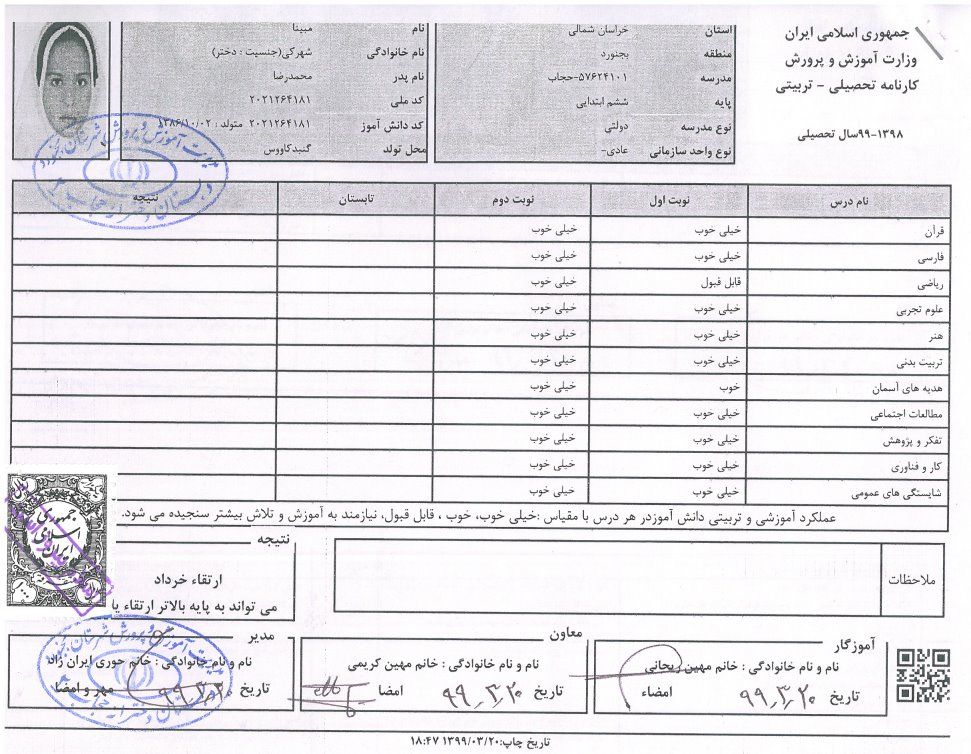 جمهوری اسلامی ایران
وزارت آموزش و پرورش
کارنامه تحصیلی - تربیتی
۹۹-۱۳۹۸سال تحصیلی
استان خراسان شمالی
منطقه بجنورد
مدرسه ۵۷۶۲۴۱۰۱-حجاب
پایه ششم ابتدایی
نوع مدرسه دولتی
نوع واحد سازمانی عادی-
نام مبینا
نام خانوادگی شهرکی(جنسیت : دختر)
نام پدر محمدرضا
کد ملی ۲۰۲۱۲۶۴۱۸۱
کد دانش آموز ۲۰۲۱۲۶۴۱۸۱ متولد : ۱۳۸۶/۱۰/۰۲
محل تولد گنبدکاووس
نام درس نوبت اول نوبت دوم تابستان نتیجه
قرآن خیلی خوب خیلی خوب
فارسی خیلی خوب خیلی خوب
ریاضی قابل قبول خیلی خوب
علوم تجربی خیلی خوب خیلی خوب
هنر خیلی خوب خیلی خوب
تربیت بدنی خیلی خوب خیلی خوب
هدیه های آسمان خوب خیلی خوب
مطالعات اجتماعی خیلی خوب خیلی خوب
تفکر و پژوهش خیلی خوب خیلی خوب
کار و فناوری خیلی خوب خیلی خوب
شایستگی های عمومی خیلی خوب خیلی خوب
عملکرد آموزشی و تربیتی دانش آموزدر هر درس با مقیاس :خیلی خوب، خوب ، قابل قبول، نیازمند به آموزش و تلاش بیشتر سنجیده می شود.
ملاحظات
نتیجه
ارتقاء خرداد
می تواند به پایه بالاتر ارتقاء یا
جمهوری
اسلامی
ایران
آموزگار
نام و نام خانوادگی : خانم مهین ریحانی
تاریخ ۹۹,۳,۲۰ امضاء
معاون
نام و نام خانوادگی : خانم مهین کریمی
تاریخ ۹۹,۳,۲۰ امضا
مدیر
نام و نام خانوادگی : خانم حوری ایران زاد
تاریخ ۹۹,۳,۲۰ مهر و امضا
مدیریت آموزش و پرورش شهرستان بجنورد
تاریخ چاپ:۱۳۹۹/۰۳/۲۰ ۱۸:۴۷